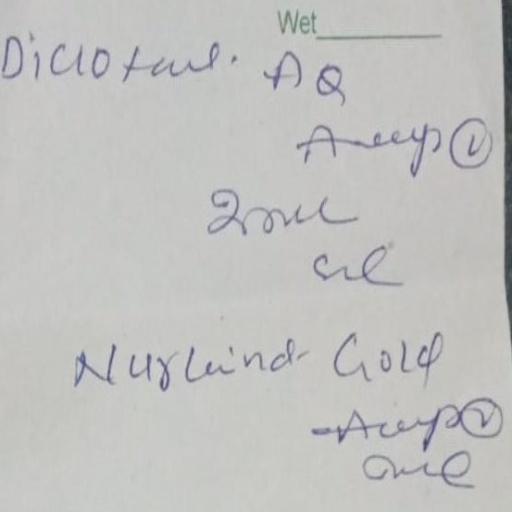 Wet
Diclotal. AQ
Amp ①
2ml
Nurkind- Gold
Amp ①